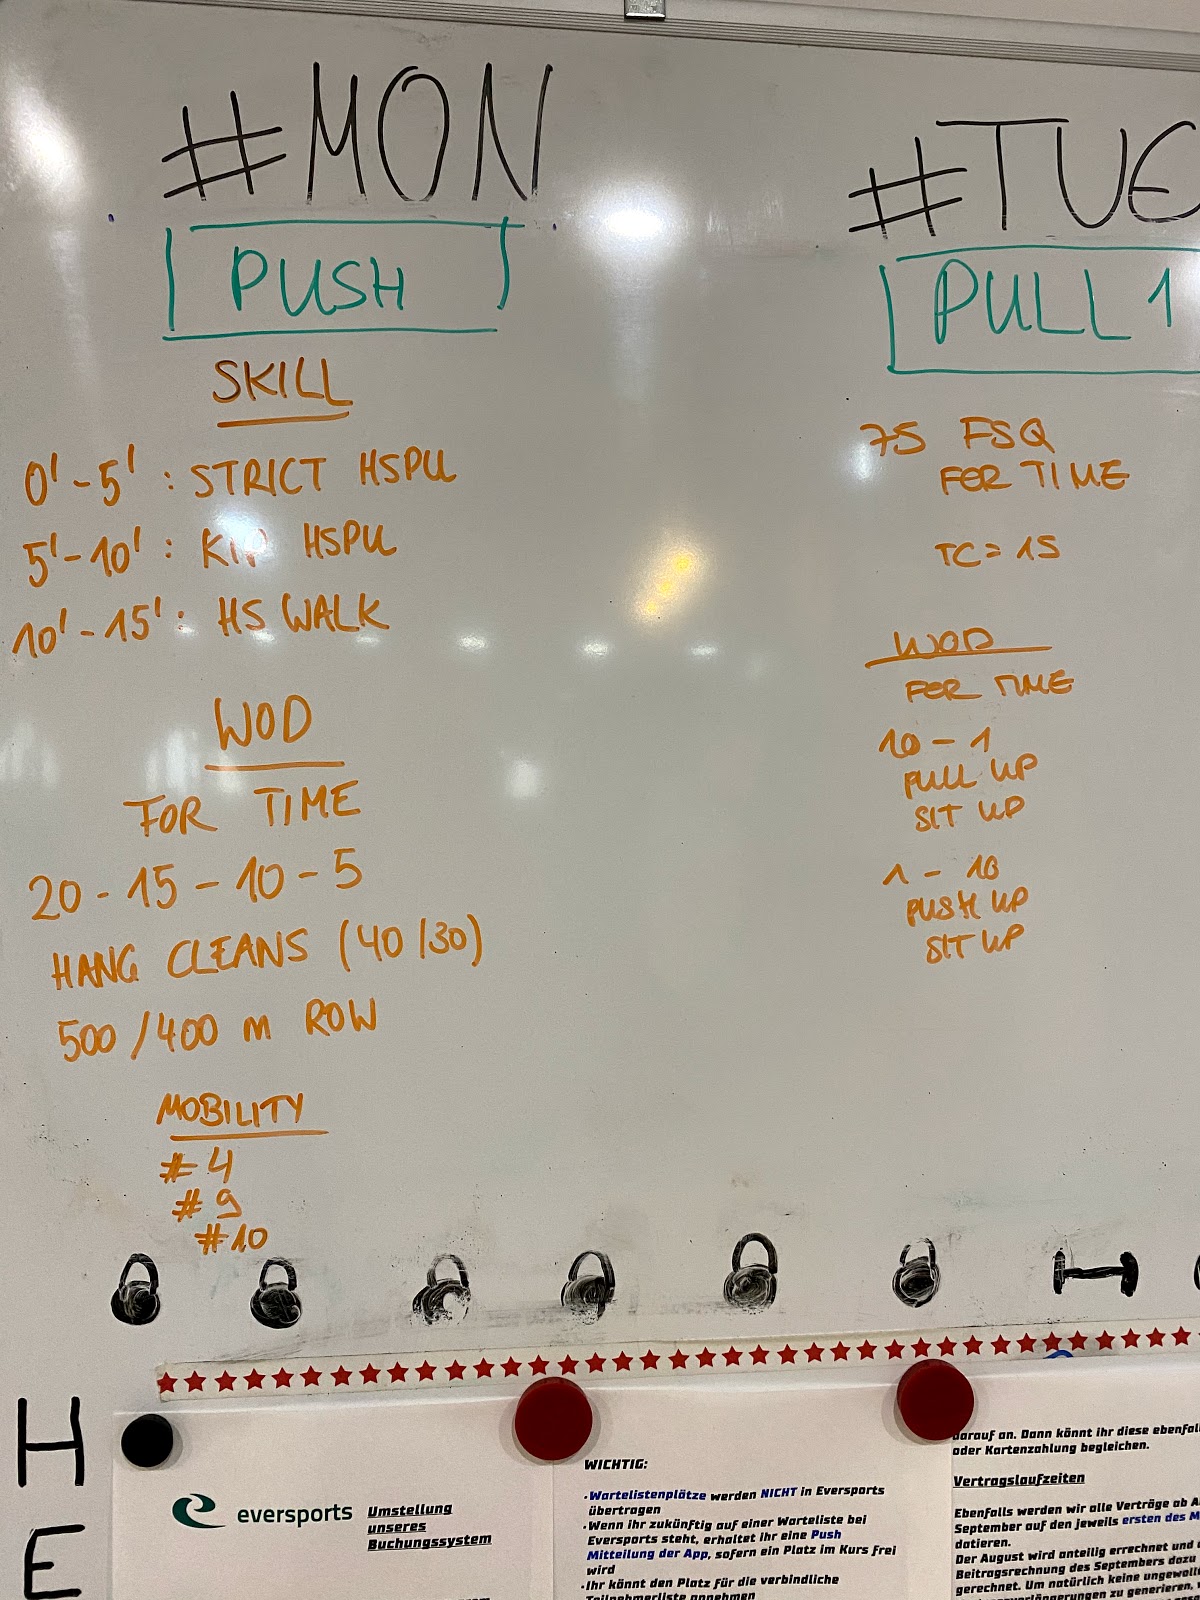 #MON
PUSH
SKILL
0'-5' : STRICT HSPU
5'-10' : KIP HSPU
10'-15' : HS WALK
WOD
FOR TIME
20 - 15 - 10 - 5
HANG CLEANS (40/30)
500/400 m ROW
MOBILITY
#4
#9
#10
#TUE
PULL 1
75 FSQ
FOR TIME
TC = 15
WOD
FOR TIME
10 - 1
PULL UP
SIT UP
1 - 10
PUSH UP
SIT UP
H
E
eversports
Umstellung
unseres
Buchungssystem
WICHTIG:
·Wartelistenplätze werden NICHT in Eversports
übertragen
·Wenn ihr zukünftig auf einer Warteliste bei
Eversports steht, erhaltet ihr eine Push
Mitteilung der App, sofern ein Platz im Kurs frei
wird
·Ihr könnt den Platz für die verbindliche
Teilnehmerliste annehmen
darauf an. Dann könnt ihr diese ebenfal
oder Kartenzahlung begleichen.
Vertragslaufzeiten
Ebenfalls werden wir alle Verträge ab A
September auf den jeweils ersten des M
datieren.
Der August wird anteilig errechnet und
Beitragsrechnung des Septembers dazu
gerechnet. Um natürlich keine ungewoll
zu generieren,